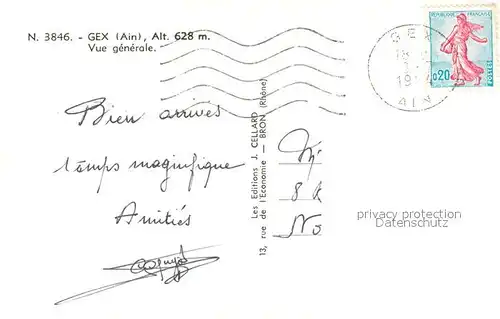 N. 3846. - GEX (Ain), Alt. 628 m.
Vue générale.
GEX
18
19
AIN
REPUBLIQUE FRANÇAISE
0,20
POSTES
Bien arrivés
temps magnifique
Amitiés
Les Editions J. CELLARD
13, rue de l'Economie — BRON (Rhône)
Mr
8 R
No
privacy protection
Datenschutz